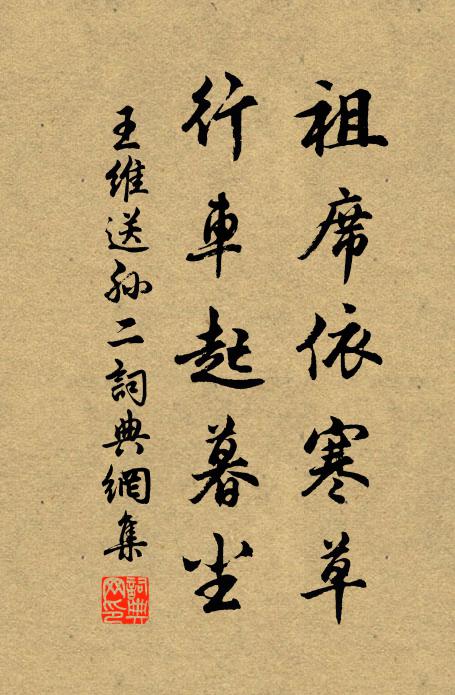 祖席依寒草
行車起暮尘
王維送孙二詞典網集
詞典网印